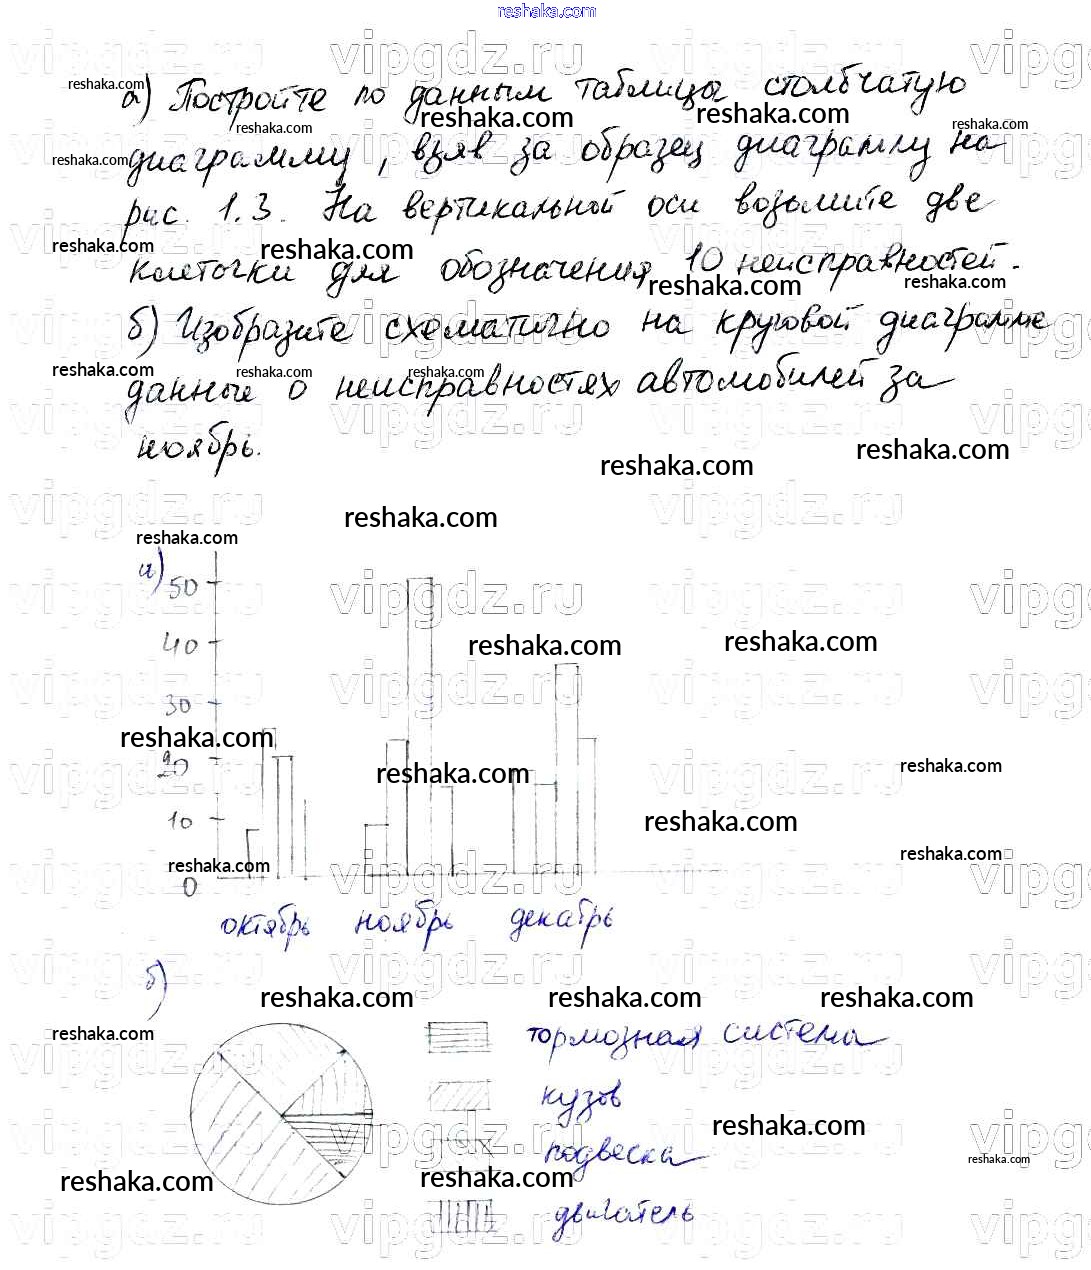 reshaka.com
а) Постройте по данным таблицы столбчатую
диаграмму, взяв за образец диаграмму на
рис. 1.3. На вертикальной оси возьмите две
клеточки для обозначения 10 неисправностей.
б) Изобразите схематично на круговой диаграмме
данные о неисправностях автомобилей за
ноябрь.
а)
50
40
30
20
10
0
октябрь ноябрь декабрь
б)
тормозная система
кузов
подвеска
двигатель
vipgdz.ru
reshaka.com